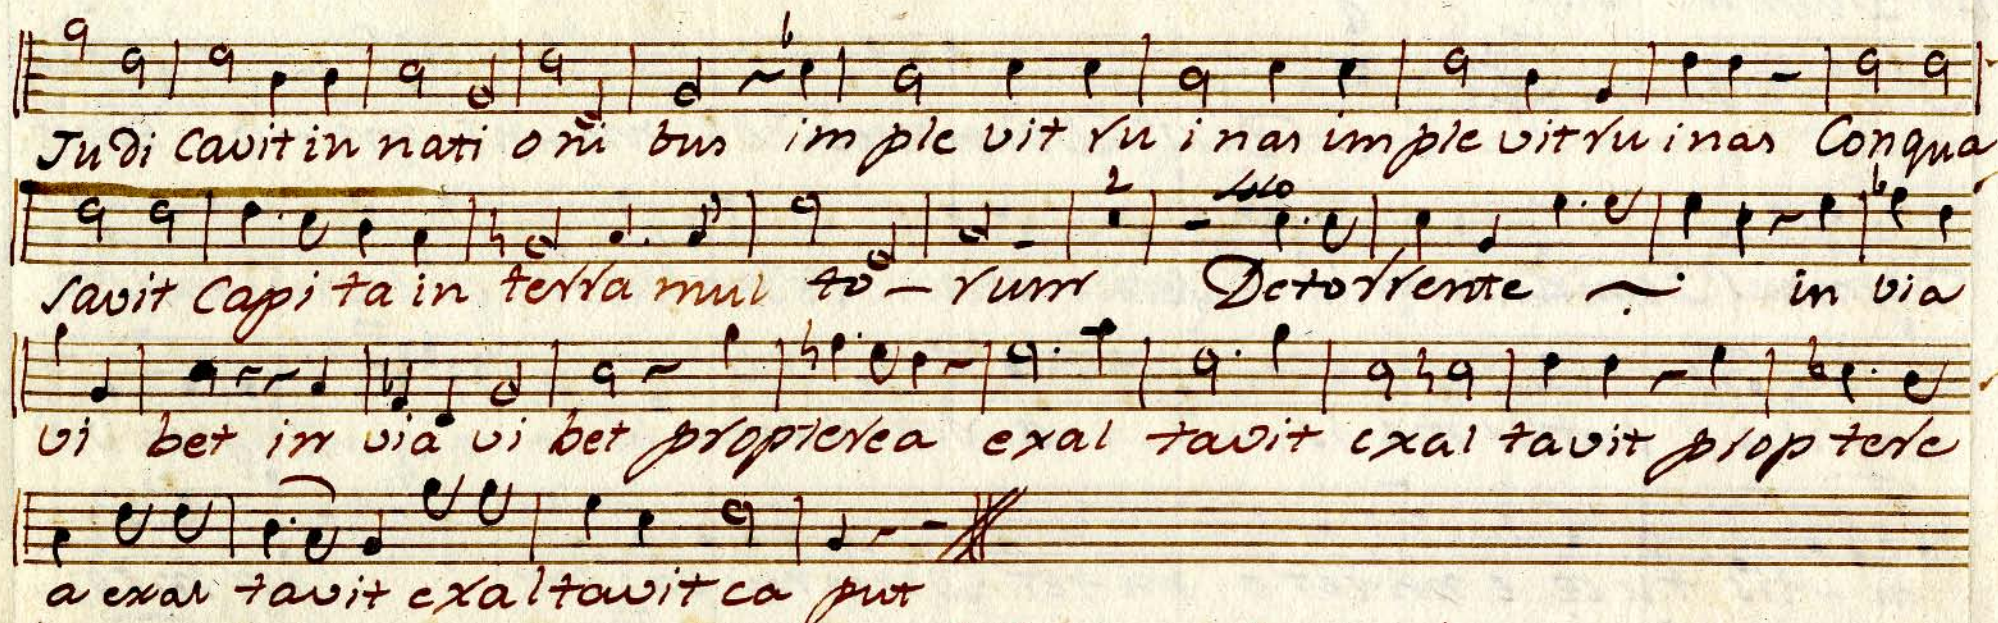 Judi cavit in nati oni bus im ple vit ru inas im ple vit ru inas Conqua
2 solo
savit Capi ta in terra mul to – rum Detorrente in via
vi bet in via vi bet propterea exal tavit exal tavit prop tere
a exal tavit exaltavit ca put